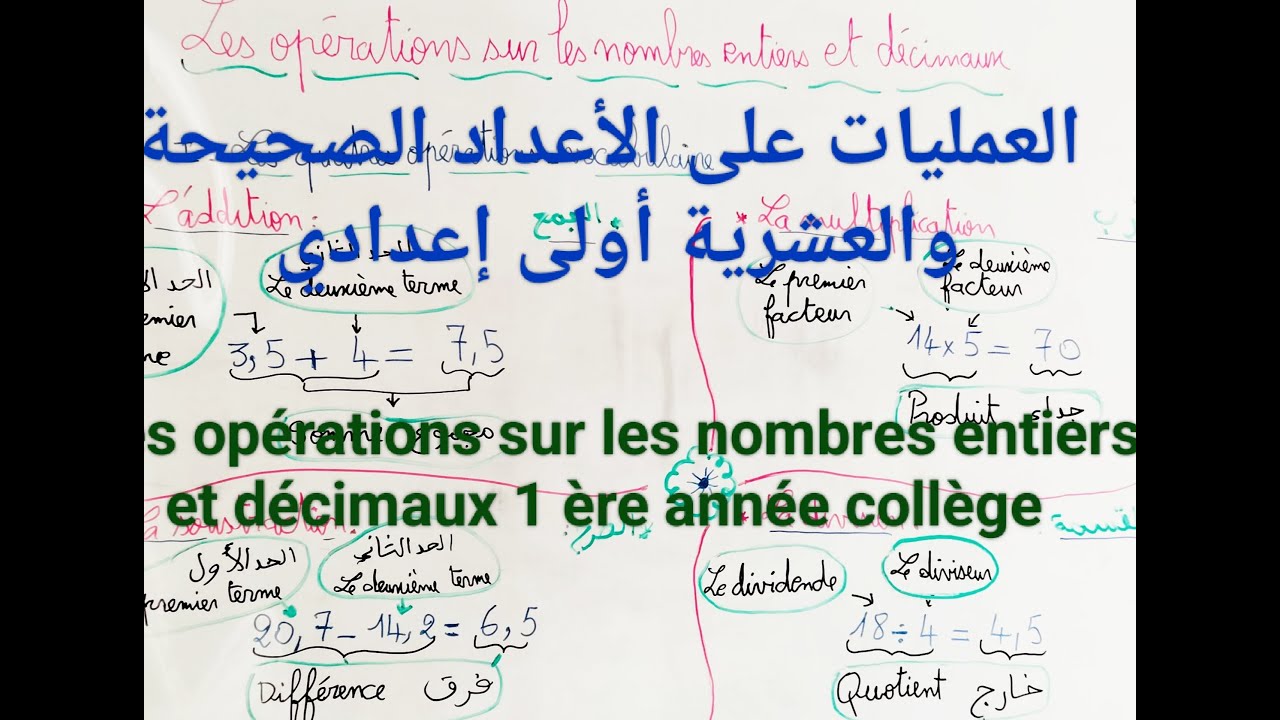 Les opérations sur les nombres entiers et décimaux
العمليات على الأعداد الصحيحة
والعشرية أولى إعدادي
Les quatre opérations vocabulaire
L'addition:
الجمع
* La multiplication
الحد الثاني
Le deuxième terme
Le premier facteur
Le deuxième facteur
3,5 + 4 = 7,5
14 × 5 = 70
Somme مجموع
Produit جداء
es opérations sur les nombres entiers
et décimaux 1 ère année collège
الحد الأول
premier terme
الحد الثاني
Le deuxième terme
Le dividende
Le diviseur
20,7 - 14,2 = 6,5
18 ÷ 4 = 4,5
Différence فرق
Quotient خارج